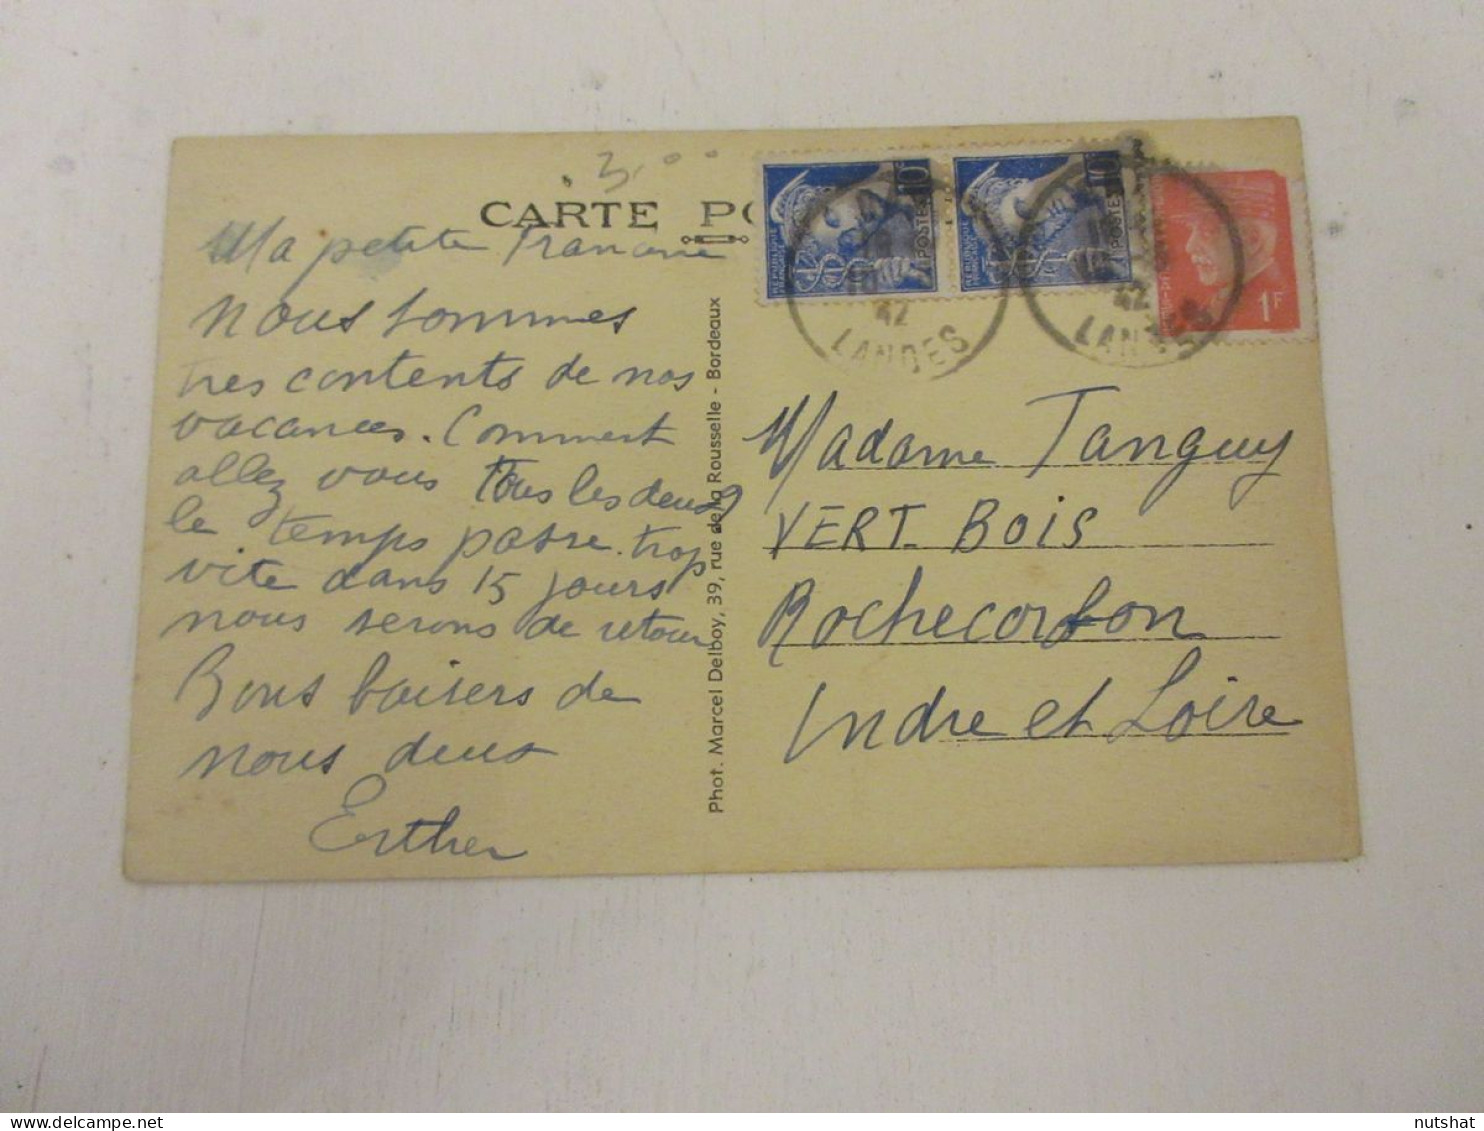 3,00
CARTE PO
Ma petite Francine
Nous sommes
tres contents de nos
vacances. Comment
allez vous tous les deux
le temps passe trop
vite dans 15 jours
nous serons de retour
Bons baisers de
nous deux
Esther
Phot. Marcel Delboy, 39, rue de la Rousselle - Bordeaux
10c
POSTES
10
POSTES
1F
42
LANDES
42
LANDES
Madame Tanguy
VERT-BOIS
Rochecorbon
Indre et Loire
nutshat